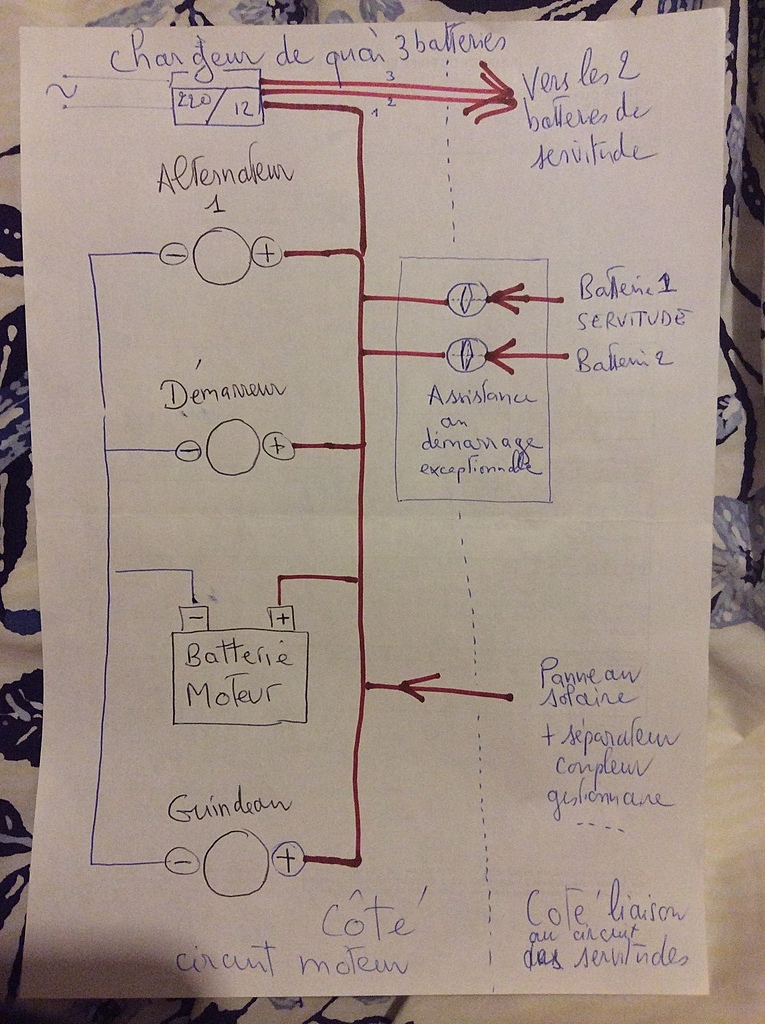 Chargeur de quai 3 batteries
3
~
220/12
2
1
Vers les 2
batteries de
servitude
Alternateur
1
- +
Batterie 1
SERVITUDE
Batterie 2
Démarreur
- +
Assistance
au
démarrage
exceptionnelle
- +
Batterie
Moteur
Panneau
solaire
+ séparateur
coupleur
gestionnaire
----
Guindeau
- +
Côté
circuit moteur
Coté liaison
au circuit
des servitudes